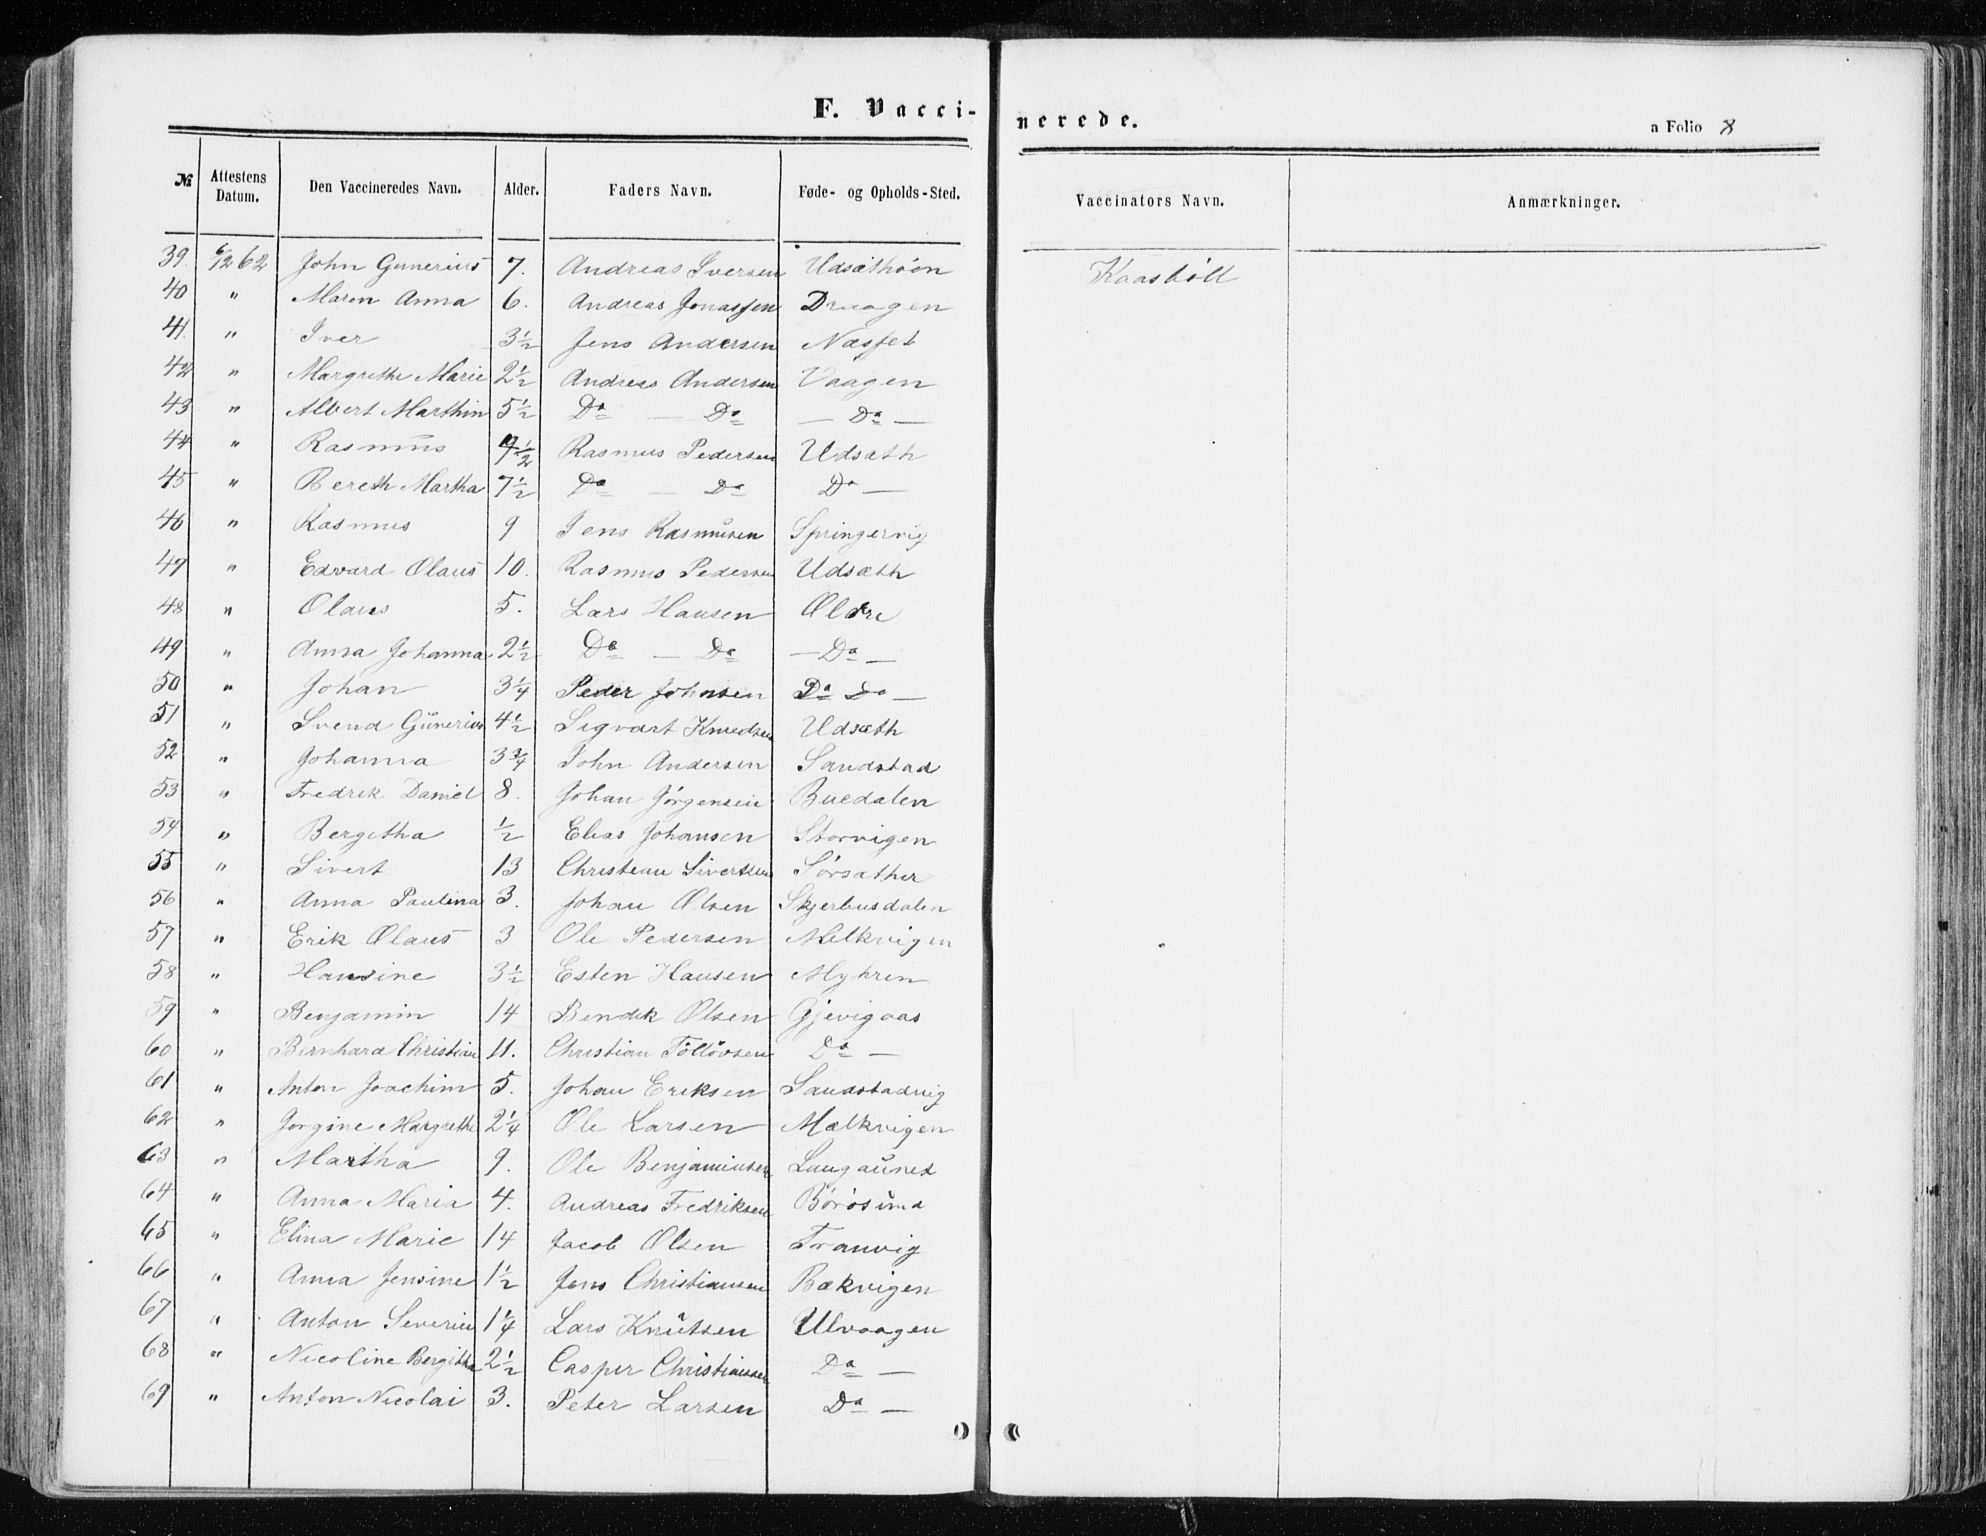 F. Vaccinerede.
a Folio 8
№ Attestens Datum. Den Vaccineredes Navn. Alder. Faders Navn. Føde- og Opholds-Sted. Vaccinators Navn. Anmærkninger.
39. 6/12 62 John Gunerius 7. Andreas Iversen Udsæthøen Kaasbøll
40 " Maren Anna 6. Andreas Jonassen Draagen
41. " Iver 3½ Jens Andersen Næsset
42 " Margrethe Marie 2½ Andreas Andersen Vaagen
43 " Albert Marthin 5½ Do — Do — Do —
44 " Rasmus 9½ Rasmus Pedersen Udsæth
45 " Bereth Martha 7½ Do — Do Do —
46 " Rasmus 9 Jens Rasmusen Springervig
49 " Edvard Olaus 10. Rasmus Pedersen Udsæth
48 " Olaus 5. Lars Hansen Øldre
49 " Anna Johanna 2½ Do — Do — Do —
50 " Johan 3¼ Peder Johnsen Do Do —
51 " Svend Gunerius 4½ Sigvart Knudsen Udsæth
52 " Johanna 3¾ John Andersen Sandstad
53 " Fredrik Daniel 8. Johan Jørgensen Buedalen
54 " Bergitha ½ Elias Johansen Storvigen
55 " Sivert 13 Christian Sivertsen Sørsæther
56 " Anna Paulina 3. Johan Olsen Skjerbusdalen
57 " Erik Olaus 3 Ole Pedersen Melkvigen
58 " Hansine 3½ Esten Hansen Myhren
59 " Benjamin 14 Bendik Olsen Gjevigaas
60 " Bernhard Christian 11. Christian Tollovsen Do —
61 " Anton Joachim 5. Johan Eriksen Sandstadvig
62 " Jorgine Margrethe 2¼ Ole Larsen Mælkvigen
63 " Martha 9. Ole Benjaminsen Laugaunet
64 " Anna Maria 4. Andreas Fredriksen Børøsund
65 " Elina Marie 14 Jacob Olsen Tranvig
66 " Anna Jensine 1½ Jens Christiansen Bækvigen
67 " Anton Severin 1¼ Lars Knutsen Ulvaagen
68 " Nicoline Bergitha 2½ Casper Christiansen Do —
69 " Anton Nicolai 3. Peter Larsen Do —